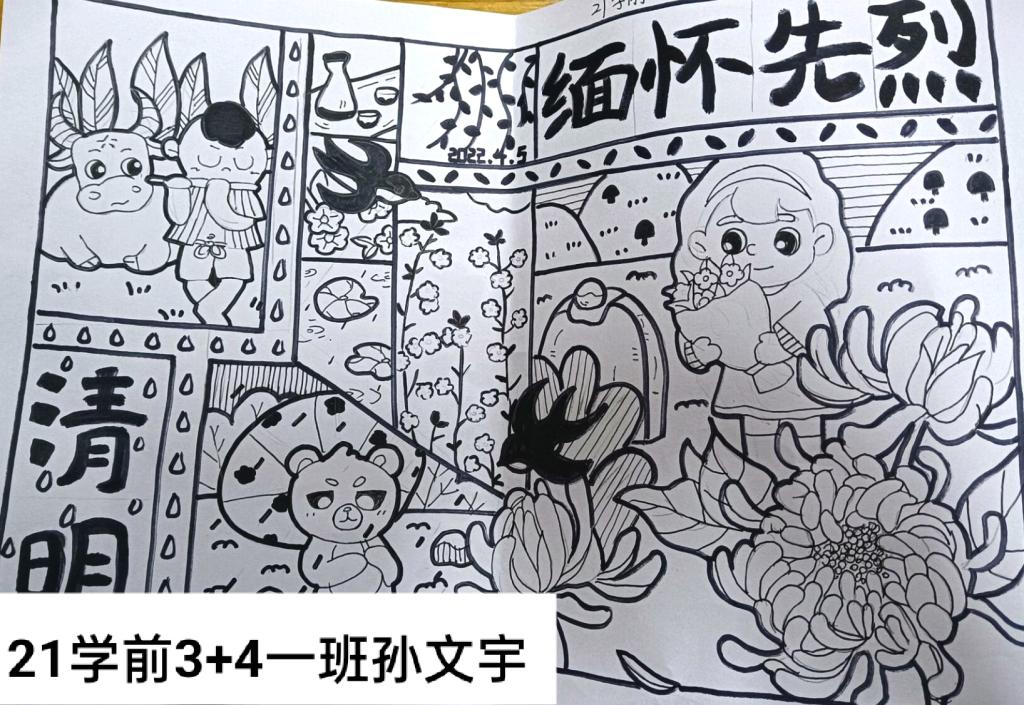 21学前
缅怀先烈
2022.4.5
清明
21学前3+4一班孙文宇